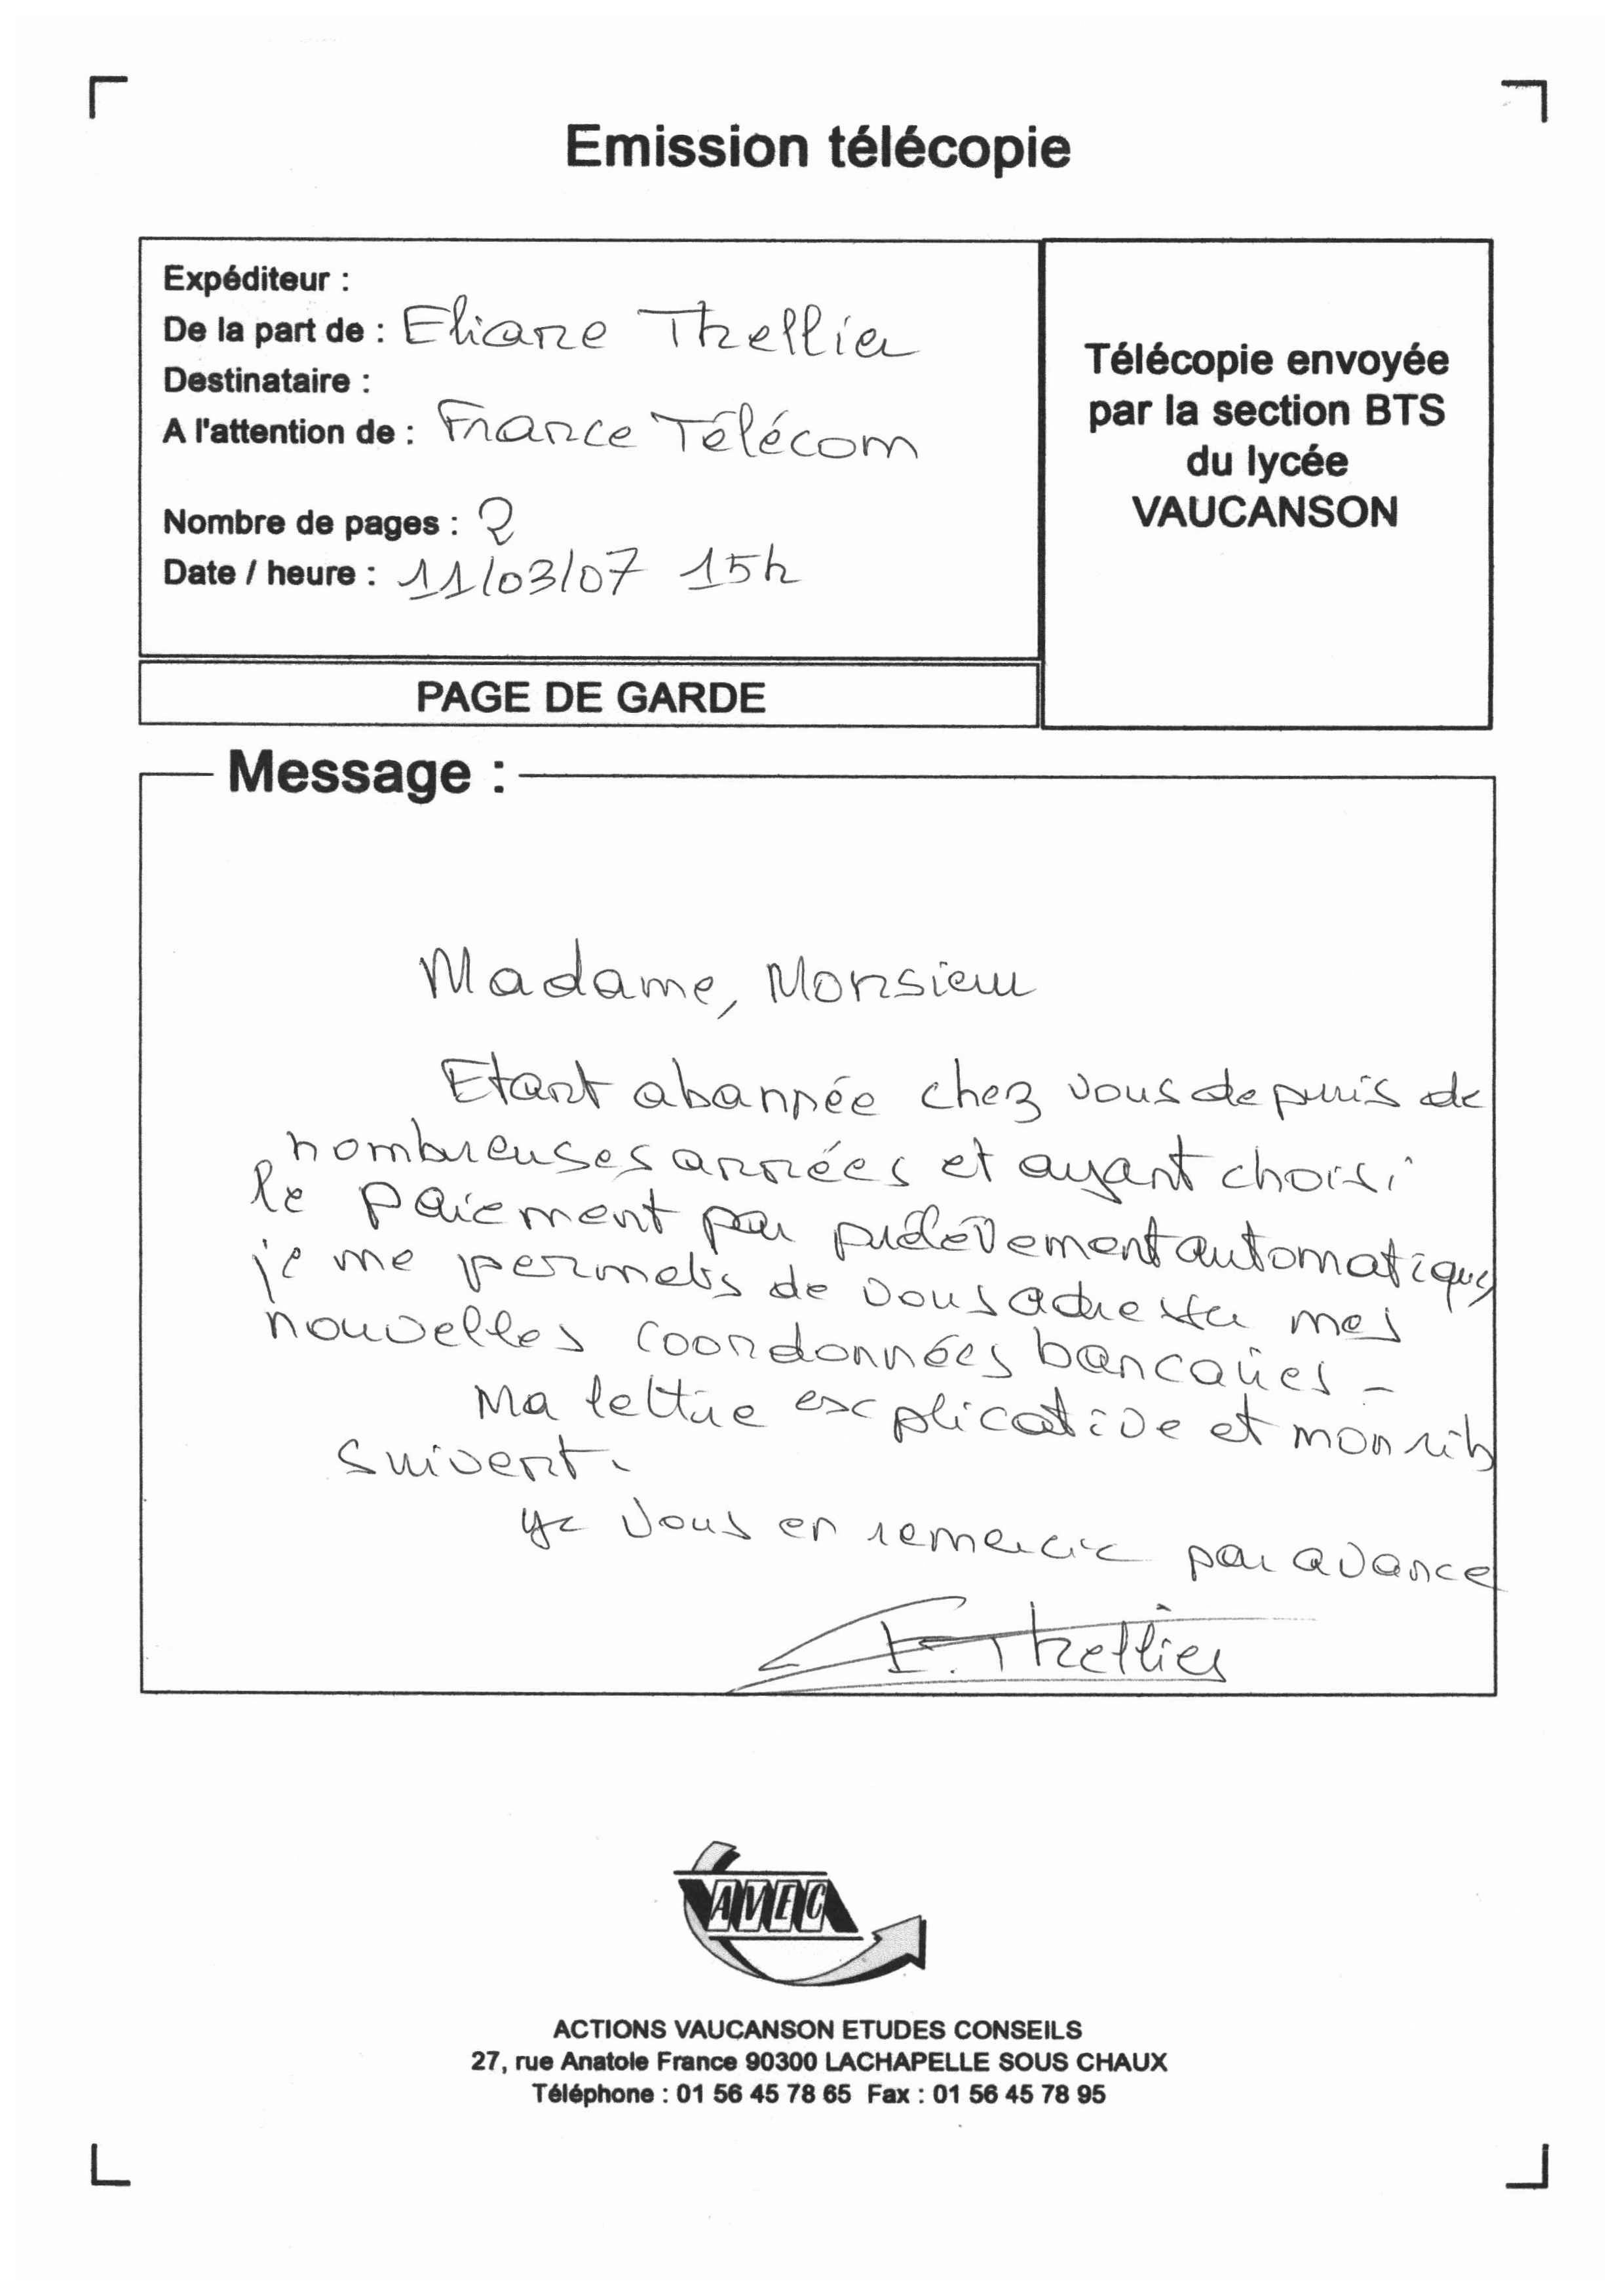 Emission télécopie
Expéditeur :
De la part de : Eliane Thellier
Destinataire :
A l'attention de : France Télécom
Nombre de pages : 2
Date / heure : 11/03/07 15h
Télécopie envoyée
par la section BTS
du lycée
VAUCANSON
PAGE DE GARDE
Message :
Madame, Monsieur
Etant abonnée chez vous depuis de
nombreuses années et ayant choisi
le paiement par prélèvement automatique,
je me permets de vous adresser mes
nouvelles coordonnées bancaires -
Ma lettre explicative et mon rib
suivent.
Je vous en remercie par avance
E. Thellier
AVEC
ACTIONS VAUCANSON ETUDES CONSEILS
27, rue Anatole France 90300 LACHAPELLE SOUS CHAUX
Téléphone : 01 56 45 78 65 Fax : 01 56 45 78 95